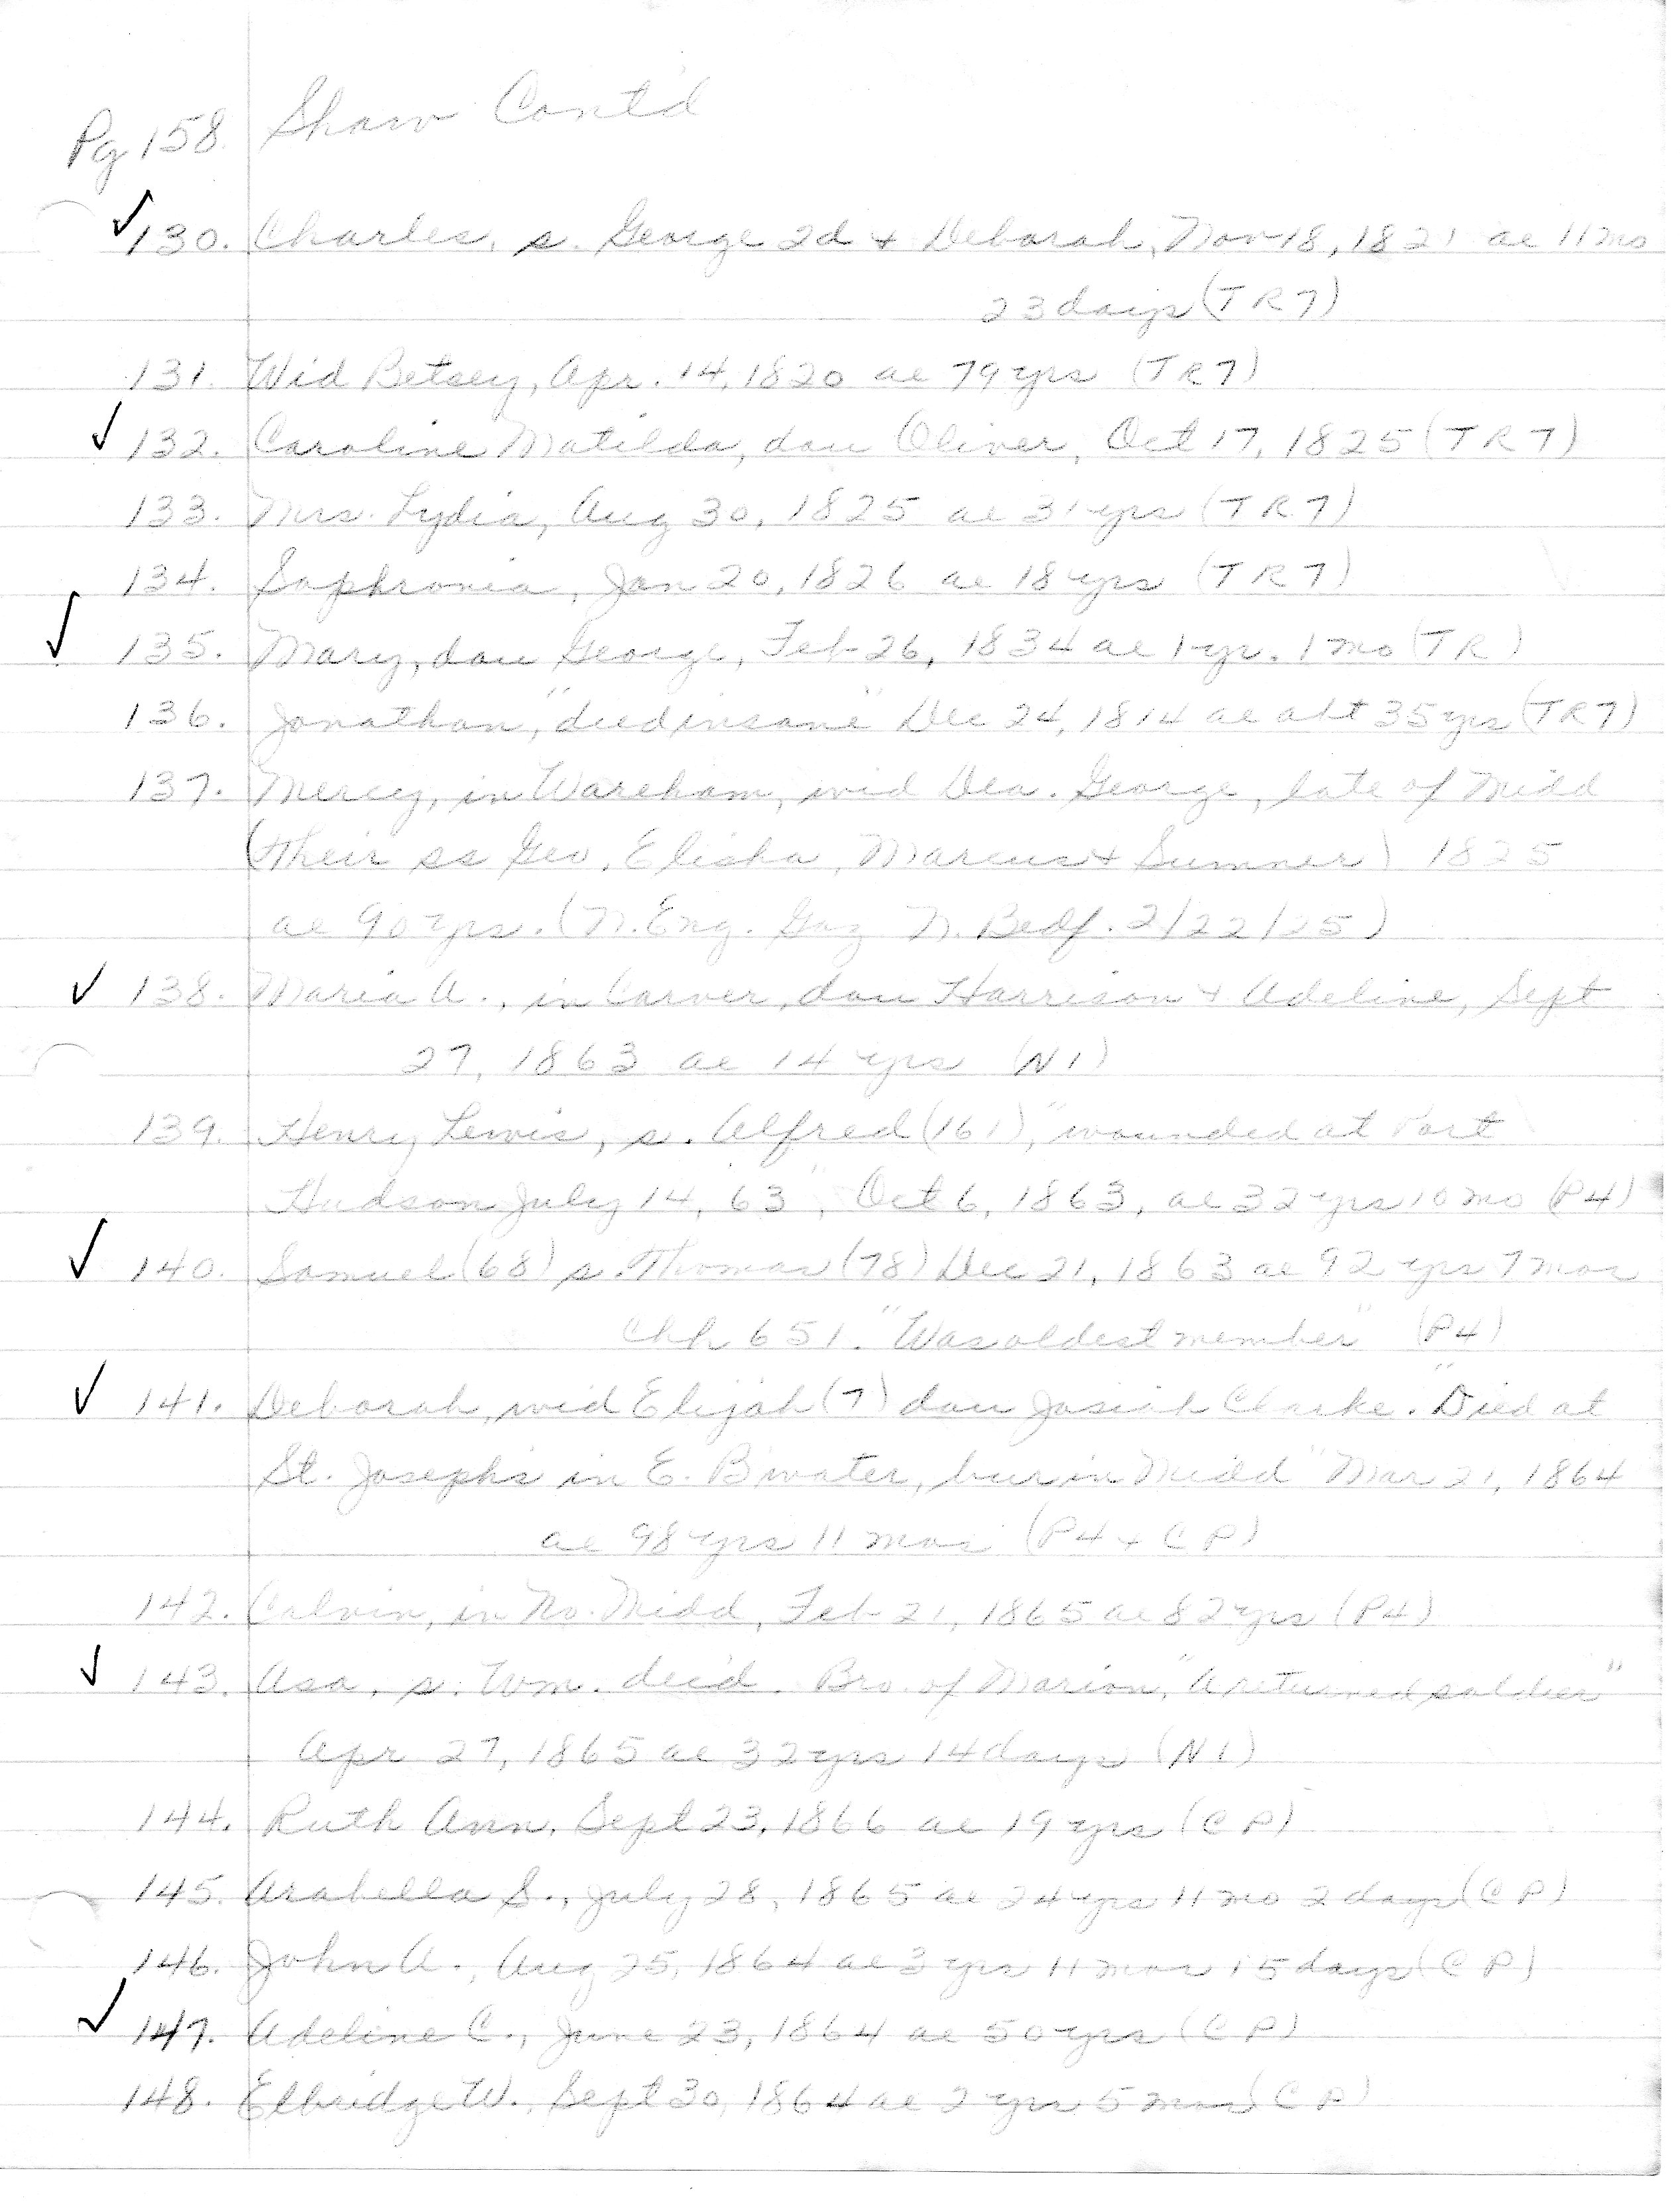 Pg 158. Shaw Cont'd
✓ 130. Charles, s. George 2d + Deborah, Nov 18, 1821 ae 11 mo
23 days (TR7)
131. Wid Betsey, Apr. 14, 1820 ae 79 yrs (TR7)
✓ 132. Caroline Matilda, dau Oliver, Oct 17, 1825 (TR7)
133. Mrs. Lydia, Aug 30, 1825 ae 31 yrs (TR7)
134. Sophronia, Jan 20, 1826 ae 18 yrs (TR7)
✓ 135. Mary, dau George, Feb 26, 1834 ae 1 yr. 1 mo (TR)
136. Jonathan, "died insane" Dec 24, 1814 ae abt 35 yrs (TR7)
137. Mercy, in Wareham, wid Dea. George, late of Midd
(Their ss Geo, Elisha, Marcus + Sumner) 1825
ae 90 yrs. (N. Eng. Gaz N. Bedf. 2/22/25)
✓ 138. Maria A., in Carver, dau Harrison + Adeline, Sept
27, 1863 ae 14 yrs (N1)
139. Henry Lewis, s. Alfred (161), "wounded at Port
Hudson July 14, 63", Oct 6, 1863, ae 32 yrs 10 mo (P4)
✓ 140. Samuel (68) s. Thomas (78) Dec 21, 1863 ae 92 yrs 7 mos
Chh 651. "Was oldest member" (P4)
✓ 141. Deborah, wid Elijah (7) dau Josiah Clarke. "Died at
St. Josephs in E. Bwater, bur in Midd" Mar 21, 1864
ae 98 yrs 11 mos (P4 + CP)
142. Calvin, in No. Midd, Feb 21, 1865 ae 82 yrs (P4)
✓ 143. Asa, s. Wm. dec'd. Bro. of Marion, "A returned soldier"
Apr 27, 1865 ae 32 yrs 14 days (N1)
144. Ruth Ann, Sept 23, 1866 ae 19 yrs (CP)
145. Arabella S., July 28, 1865 ae 24 yrs 11 mo 2 days (CP)
146. John A., Aug 25, 1864 ae 3 yrs 11 mos 15 days (CP)
✓ 147. Adeline C., June 23, 1864 ae 50 yrs (CP)
148. Elbridge W., Sept 30, 1864 ae 2 yrs 5 mos (CP)